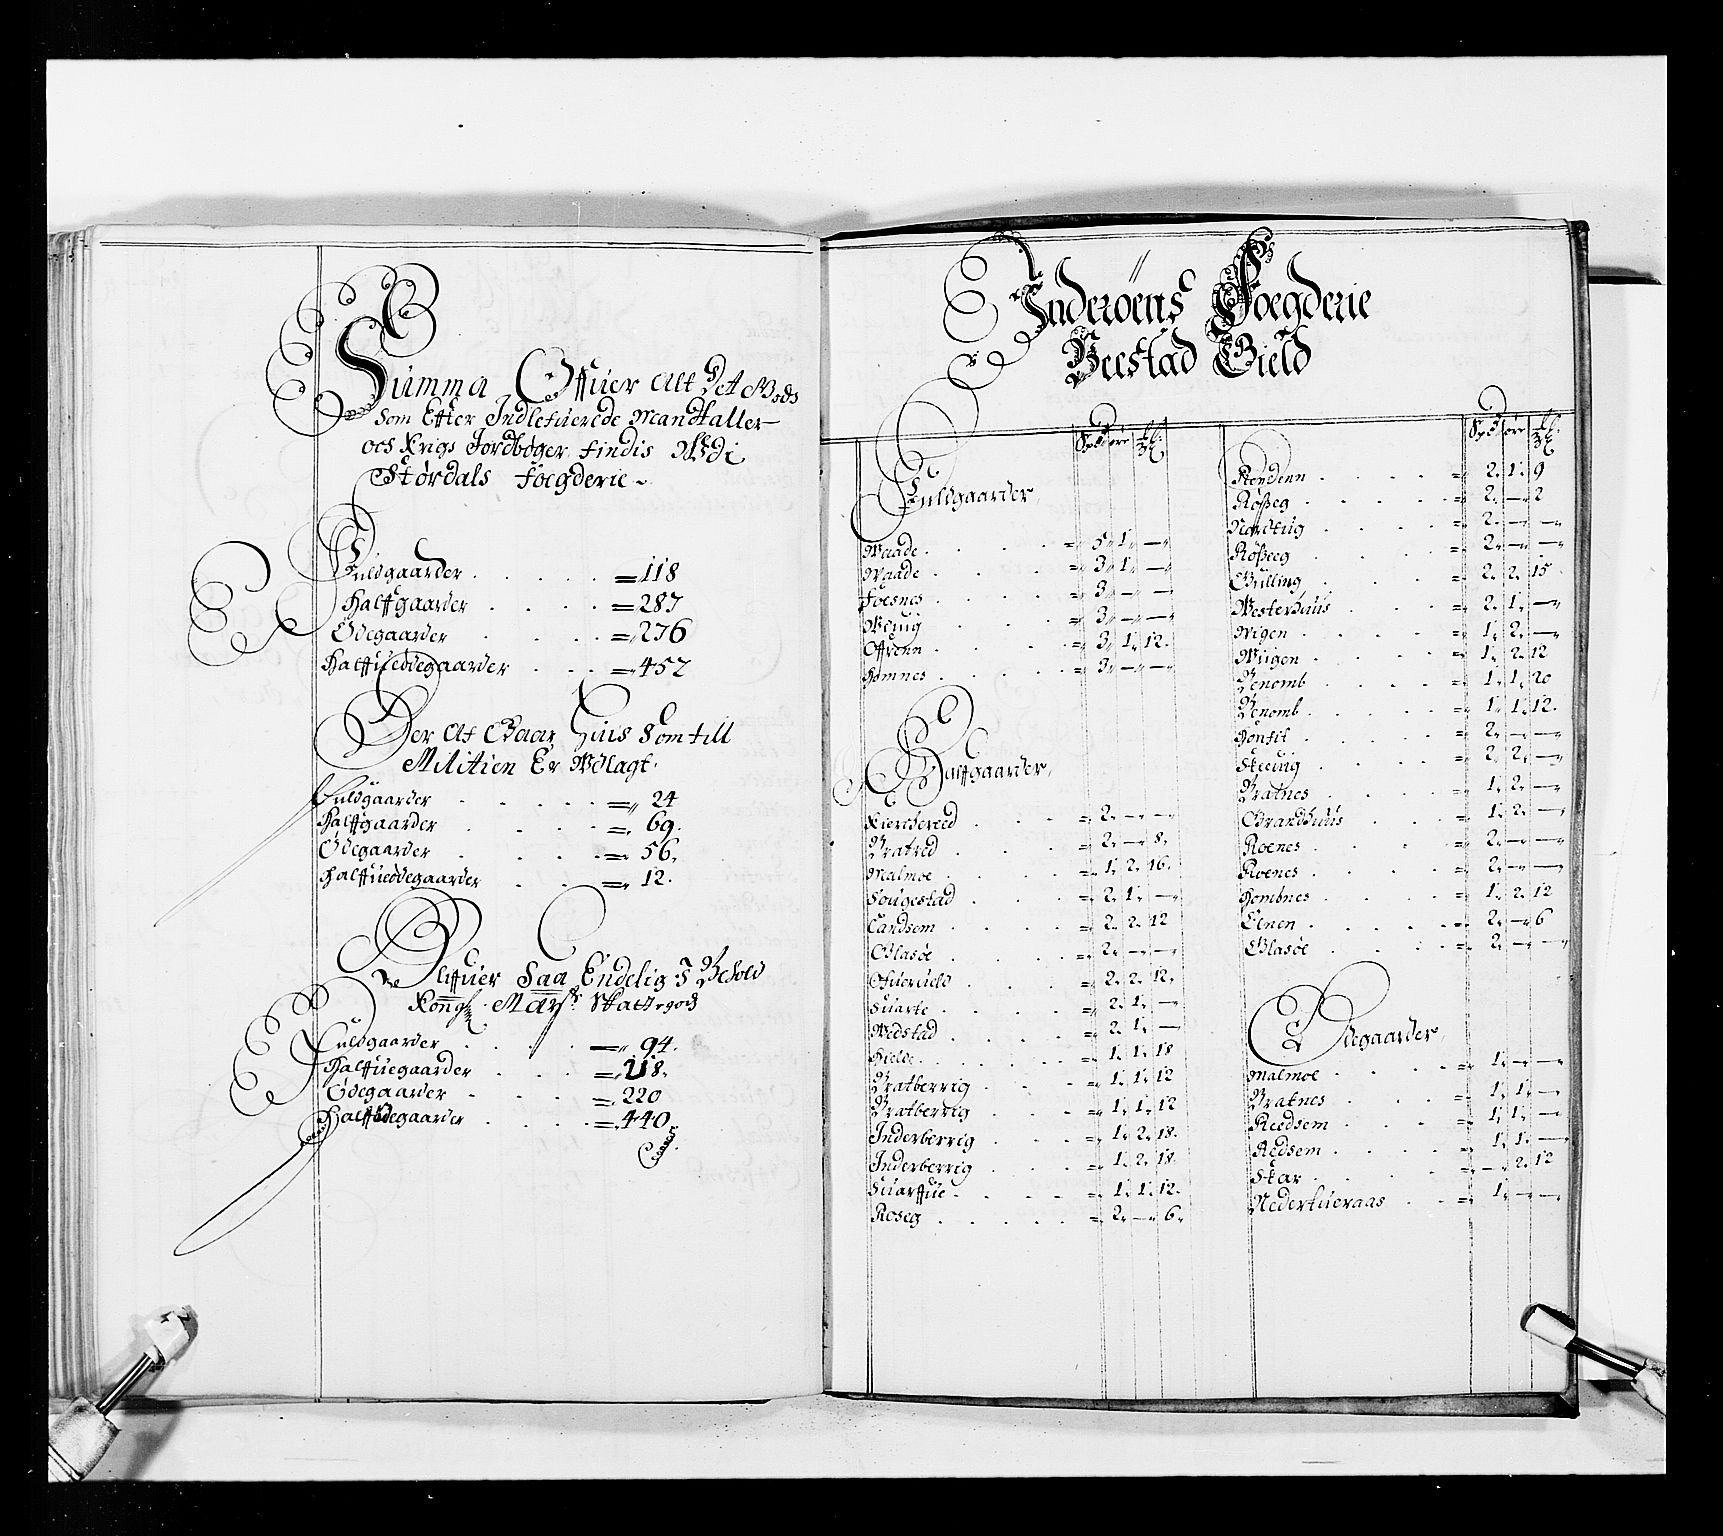 Summa Offuer Alt Det Gods
Som Efter Indlefuerede Mandtaller
och Krigs Jordbøger findis Udi
Størdals Foegderie
Fuldgaarder = 118
Halffgaarder = 287
Ødegaarder = 276
Halffueødegaarder = 452
Der Af Qvar Huis Som till
Militien Er Udlagt
Fuldgaarder = 24
Halffgaarder = 69.
Ødegaarder = 56.
Halffueødegaarder = 12.
Bliffuer Saa Endelig I Behold
Kongl. Mayts Skattegods
Fuldgaarder = 94.
Halffuegaarder = 218.
Ødegaarder = 220
Halffødegaarder = 440.
Inderøens Foegderie
Beestad Gield
Fuldgaarder
Waade = 5. 1. —
Waade = 3. 1. —
Foesnes = 3. — —
Welug = 3. — —
Offrenn = 3. 1. 12.
Homnes = 3. — —
Halffgaarder
Kierchereed = 2. — —
Bratred = 2. — 8.
Malmoe = 1. 2. 16.
Sougestad = 2. 1. —
Landsem = 2. 2. 12
Glasøe = 2. — —
Ofuerueld = 2. 2. 12.
Suarte = 2. 1. —
Wedstad = 2. 1. —
Hielde = 1. 1. 18
Bratberrig = 1. 1. 12
Bratberrig = 1. 1. 12
Inderberrig = 1. 2. 18.
Inderberrig = 1. 2. 18.
Suarffue = 1. 1. 12.
Roseg = 2. — 6.
Hendenn = 2. 1. 9
Røsseg = 2. — 2
Nordtug = 2. — —
Røsseeg = 2. — —
Gulling = 2. 2. 15
Westerhuus = 2. 1. —
Wigen = 1. 2. —
Wiigen = 1. 2. 12
Benomb = 1. 1. 20
Benomb = 1. 1. 12.
Hønsil = 2. — —
Skeeuig = 2. 2. —
Bratnes = 1. 2. —
Brandhuus = 1. 2. —
Roenes = 2. — —
Roenes = 2. — —
Hombnes = 1. 2. 12
Elnen = 2. — 6
Glasøe = 2. — —
Ødegaarder
Malmoe = 1. — —
Bratnes = 1. 1. —
Reedsem = 1. 1. —
Redsem = 1. 1. —
Skar = — 2. 12
Nederfueraas = 1. — —